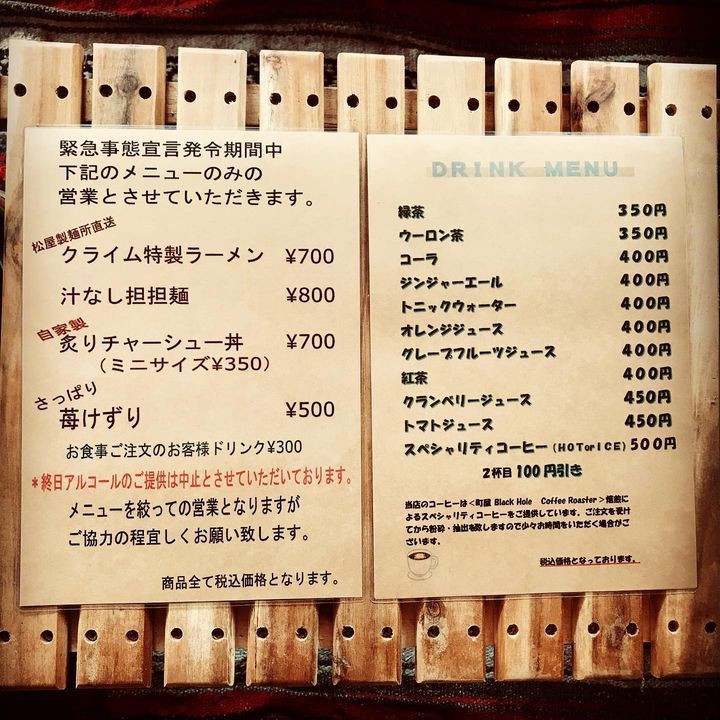 緊急事態宣言発令期間中
下記のメニューのみの
営業とさせていただきます。
松屋製麺所直送
クライム特製ラーメン ¥700
汁なし担担麺 ¥800
自家製
炙りチャーシュー丼 ¥700
(ミニサイズ¥350)
さっぱり
苺けずり ¥500
お食事ご注文のお客様ドリンク¥300
*終日アルコールのご提供は中止とさせていただいております。
メニューを絞っての営業となりますが
ご協力の程宜しくお願い致します。
商品全て税込価格となります。
DRINK MENU
緑茶 350円
ウーロン茶 350円
コーラ 400円
ジンジャーエール 400円
トニックウォーター 400円
オレンジジュース 400円
グレープフルーツジュース 400円
紅茶 400円
クランベリージュース 450円
トマトジュース 450円
スペシャリティコーヒー(HOTorICE) 500円
2杯目100円引き
当店のコーヒーは<町屋 Black Hole Coffee Roaster>焙煎に
よるスペシャリティコーヒーをご提供しています。ご注文を受け
てから粉砕・抽出を致しますので少々お時間をいただく場合がご
ざいます。
税込価格となっております。